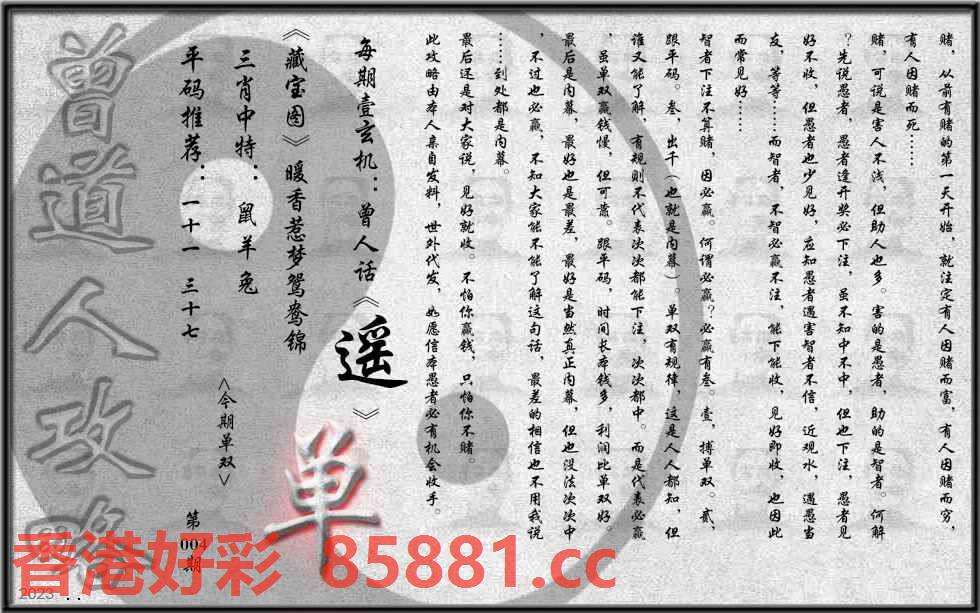 赌，从前有赌的第一天开始，就注定有人因赌而富，有人因赌而穷，
有人因赌而死……
赌，可说是害人不浅，但助人也多。害的是愚者，助的是智者。何解
？先说愚者，愚者逢开奖必下注，虽不知中不中，但也下注，愚者见
好不收，但愚者也少见好，应知愚者遇害智者不信，近观水，遇愚当
友，等等……而智者，不智必赢不注，能下能收，见好即收，也因此
而常见好……
智者下注不算赌，因必赢。何谓必赢？必赢有叁。壹，搏单双。贰，
跟平码。叁，出千（也就是内幕）。单双有规律，这是人人都知，但
谁又能了解，有规则不代表次次都能下注，次次都中。而是代表必赢
，虽单双赢钱慢，但可靠。跟平码，时间长本钱多，利润比单双好。
最后是内幕，最好也是最差，最好是当然真正内幕，但也没法次次中
，不过也必赢，不知大家能不能了解这句话，最差的相信也不用我说
……到处都是内幕。
最后还是对大家说，见好就收。不怕你赢钱，只怕你不赌。
此攻略由本人亲自发料，世外代发，如愿信本愚者必有机会收手。
每期壹玄机：曾人话《遥》
《藏宝图》暖香惹梦鸳鸯锦
三肖中特：鼠羊兔
平码推荐：一十一 三十七
<今期单双>
单
第004期
曾道人攻略
香港好彩 85881.cc
2023